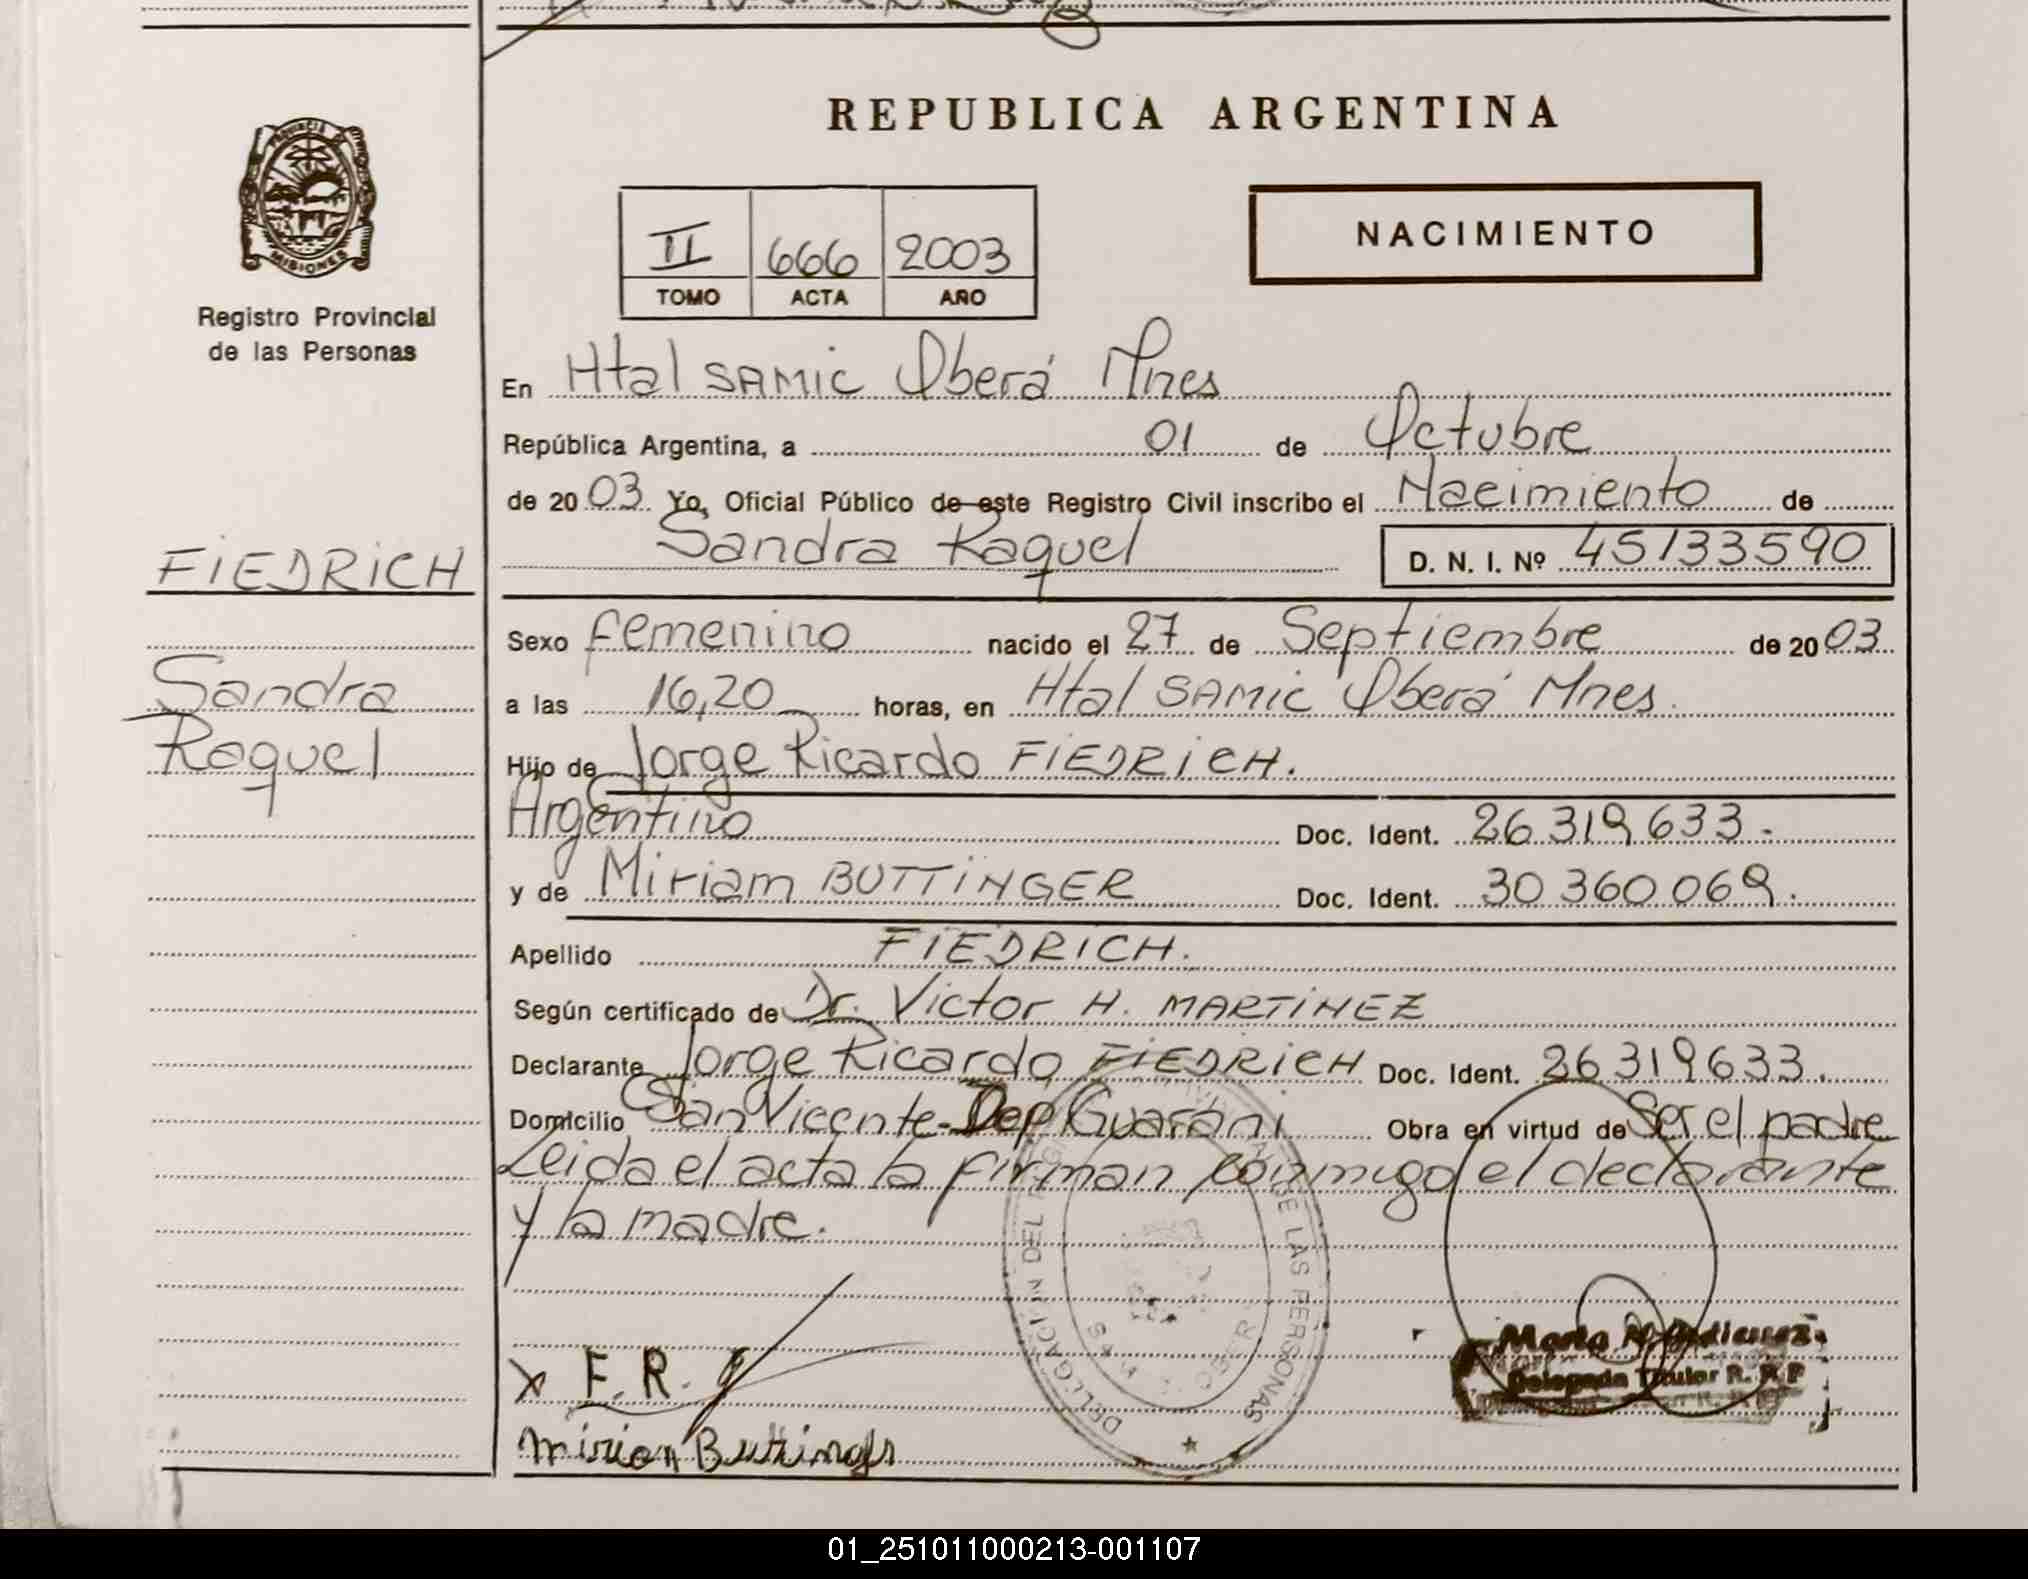 REPUBLICA ARGENTINA
PROVINCIA DE
MISIONES
Registro Provincial
de las Personas
II 666 2003
TOMO ACTA AÑO
NACIMIENTO
En Htal SAMIC Oberá Mnes
República Argentina, a 01 de Octubre
de 2003 Yo, Oficial Público de este Registro Civil inscribo el Nacimiento de
Sandra Raquel D. N. I. Nº 45133590
FIEDRICH
Sandra
Raquel
Sexo femenino nacido el 27 de Septiembre de 2003
a las 16,20 horas, en Htal SAMIC Oberá Mnes.
Hijo de Jorge Ricardo FIEDRICH.
Argentino Doc. Ident. 26 319 633.
y de Miriam BUTTINGER Doc. Ident. 30 360 069.
Apellido FIEDRICH.
Según certificado de Dr. Victor H. MARTINEZ
Declarante Jorge Ricardo FIEDRICH Doc. Ident. 26 319 633.
Domicilio San Vicente-Dep Guarani Obra en virtud de Ser el padre
Leida el acta la firman conmigo el declarante
y la madre.
DE LAS PERSONAS
X F. R. J
Delegada Titular R. P. P
01_251011000213-001107